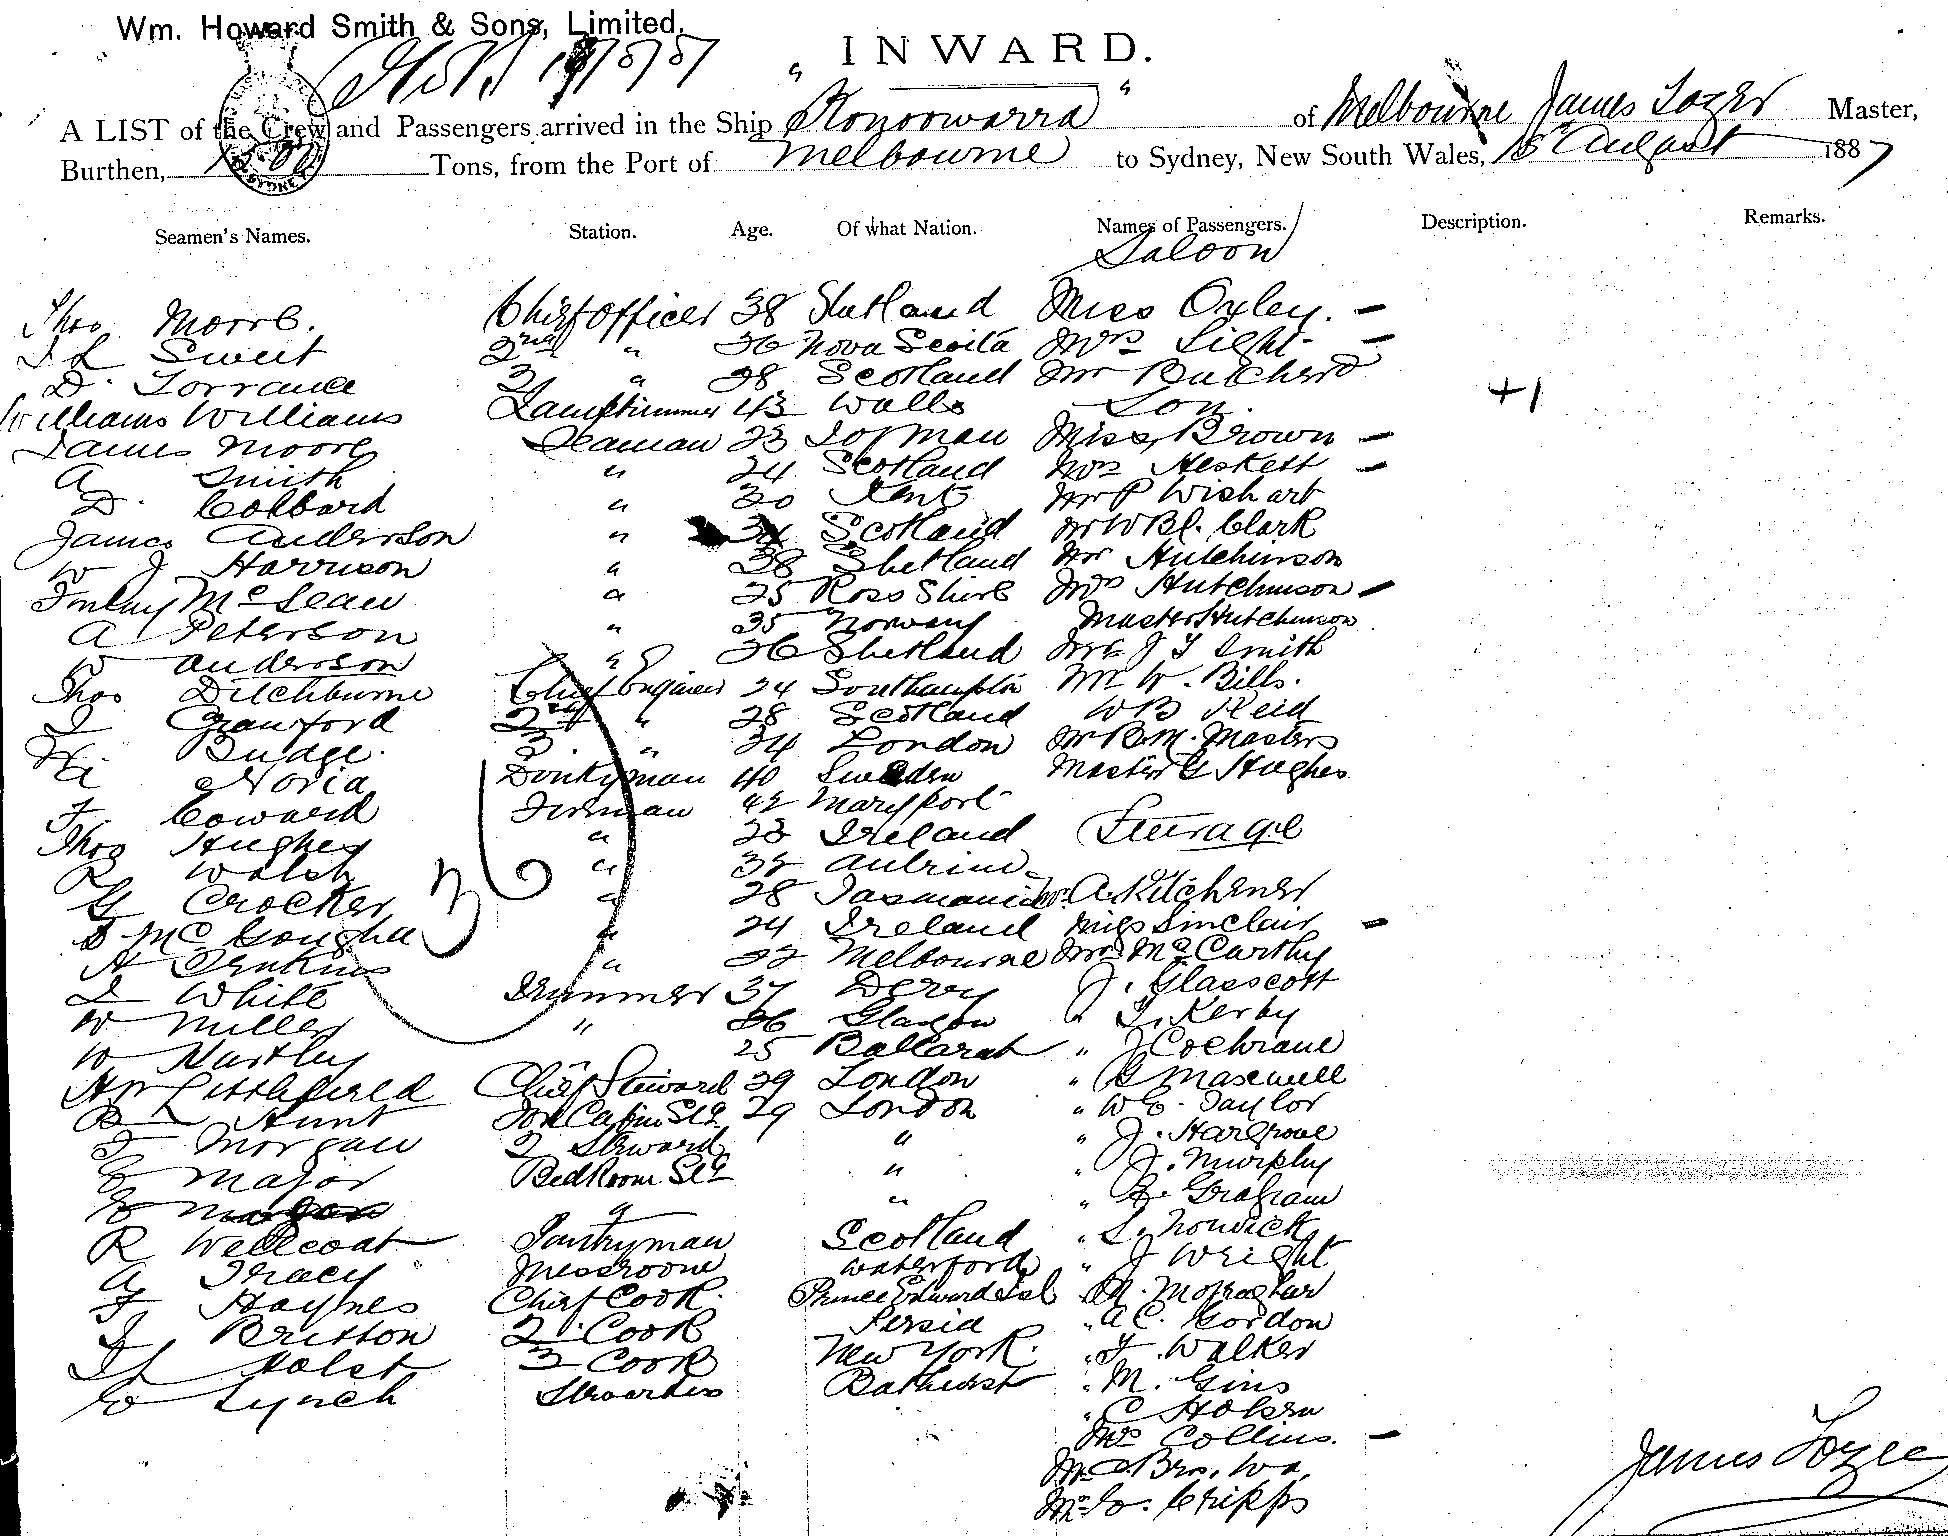 Wm. Howard Smith & Sons, Limited,
" INWARD. "
A LIST of the Crew and Passengers arrived in the Ship Konoowarra of Melbourne James Tozer Master,
Burthen, 1500 Tons, from the Port of Melbourne to Sydney, New South Wales, August 1887
Seamen's Names. Station. Age. Of what Nation. Names of Passengers. Description. Remarks.
Saloon
Thos Moore. Chief Officer 38 Shetland Miss Oxley. -
Sweet 2nd " 26 Nova Scotia Mrs Light -
D. Torrance 3 " 28 Scotland Mr Butcherd
Williams Williams Lamptrimmer 43 Walls Son. +1
James Moore Seaman 23 Miss Brown -
A Smith " 24 Scotland Mrs Heskett -
D. Colbard " 30 Kent Mr P Wishart
James Anderson " Scotland Mr W Bl. Clark
W J Harrison " 38 Shetland Mr Hutchinson
Finlay McLean " 25 Ross Shire Mrs Hutchinson -
A Peterson " 35 Norway Master Hutchinson
W Anderson " 36 Shetland J T Smith
Thos Ditchburne Chief Engineer 24 Southampton Mr W. Bills.
J Crawford 2nd " 28 Scotland W B Reid
H. Budge. 3. " 24 London Mr B. M. Masters
Noria Donkyman 40 Sweden Master G Hughes
F. Coward Fireman 42 Maryport
Steerage
Thos Hughes " 23 Ireland
R Walsh " 32 Antrim
G Crocker " 28 Tasmania Mr. A. Kitchener
" 24 Ireland Miss Sinclair -
A Jenkins " 22 Melbourne Mrs McCarthy
J White Trimmer 37 Derry J. Glasscott
W Miller " 26 Glasgow " T. Kerby
W Hartley 25 Ballarat " J Cochrane
Littlefield Chief Steward 29 London " G Maxwell
B Hunt Fore Cabin Std 29 London " W E. Taylor
T Morgan 2 Steward " " J. Hargrove
E Major Bed Room Std " " J. Murphy
E " " " Graham
R Wellcoat Pantryman Scotland " Norwick
A Tracy Messroom Waterford " J Wright
F Haynes Chief Cook. Prince Edward Isl " M.
J Britton 2. Cook Persia " A C. Gordon
Holst 3 Cook New York. " F. Walker
E Lynch Stewardess Bathurst " M. Gins
" C Holsen
Mrs Collins. -
Mr
Mr G. Cripps
James Tozer